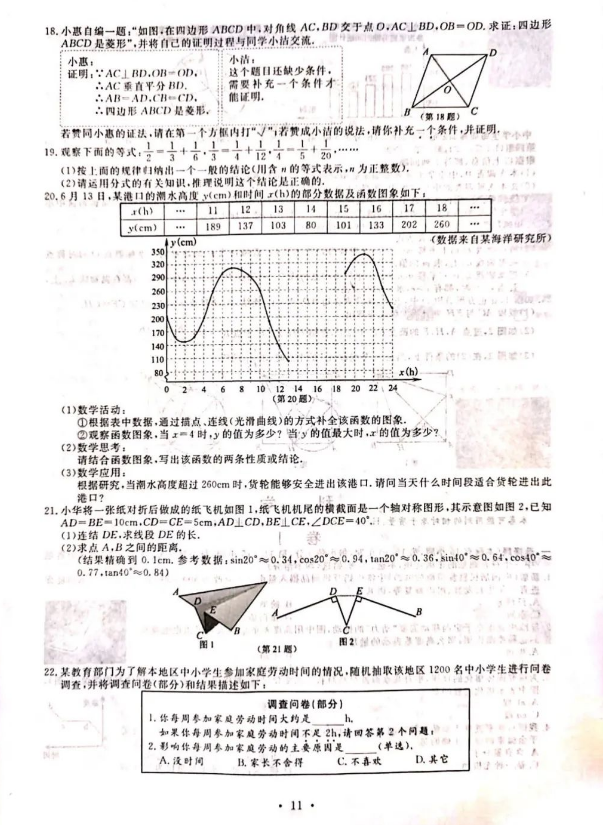 18. 小惠自编一题:“如图,在四边形 ABCD 中,对角线 AC,BD 交于点 O,AC⊥BD,OB=OD. 求证:四边形
ABCD 是菱形”,并将自己的证明过程与同学小洁交流.
小惠:
证明:∵AC⊥BD,OB=OD,
∴AC 垂直平分 BD.
∴AB=AD,CB=CD,
∴四边形 ABCD 是菱形.
小洁:
这个题目还缺少条件,
需要补充一个条件才
能证明.
A
D
O
B
C
(第 18 题)
若赞同小惠的证法,请在第一个方框内打“√”;若赞成小洁的说法,请你补充一个条件,并证明.
19. 观察下面的等式:1/2=1/3+1/6,1/3=1/4+1/12,1/4=1/5+1/20,……
(1)按上面的规律归纳出一个一般的结论(用含 n 的等式表示,n 为正整数).
(2)请运用分式的有关知识,推理说明这个结论是正确的.
20. 6 月 13 日,某港口的潮水高度 y(cm)和时间 x(h)的部分数据及函数图象如下:
x(h) … 11 12 13 14 15 16 17 18 …
y(cm) … 189 137 103 80 101 133 202 260 …
(数据来自某海洋研究所)
y(cm)
350
320
290
260
230
200
170
140
110
80
x(h)
0 2 4 6 8 10 12 14 16 18 20 22 24
(第 20 题)
(1)数学活动:
①根据表中数据,通过描点、连线(光滑曲线)的方式补全该函数的图象.
②观察函数图象,当 x=4 时,y 的值为多少?当 y 的值最大时,x 的值为多少?
(2)数学思考:
请结合函数图象,写出该函数的两条性质或结论.
(3)数学应用:
根据研究,当潮水高度超过 260cm 时,货轮能够安全进出该港口. 请问当天什么时间段适合货轮进出此
港口?
21. 小华将一张纸对折后做成的纸飞机如图 1,纸飞机机尾的横截面是一个轴对称图形,其示意图如图 2,已知
AD=BE=10cm,CD=CE=5cm,AD⊥CD,BE⊥CE,∠DCE=40°.
(1)连结 DE,求线段 DE 的长.
(2)求点 A,B 之间的距离.
(结果精确到 0.1cm. 参考数据:sin20°≈0.34,cos20°≈0.94,tan20°≈0.36,sin40°≈0.64,cos40°≈
0.77,tan40°≈0.84)
A
D
E
C
B
图 1
A
D
E
B
C
图 2
(第 21 题)
22. 某教育部门为了解本地区中小学生参加家庭劳动时间的情况,随机抽取该地区 1200 名中小学生进行问卷
调查,并将调查问卷(部分)和结果描述如下:
调查问卷(部分)
1. 你每周参加家庭劳动时间大约是____h.
如果你每周参加家庭劳动时间不足 2h,请回答第 2 个问题:
2. 影响你每周参加家庭劳动的主要原因是____(单选).
A. 没时间 B. 家长不舍得 C. 不喜欢 D. 其它
· 11 ·